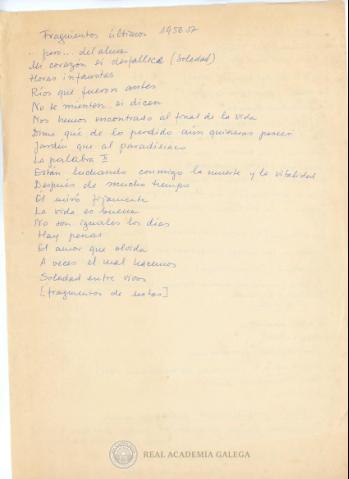 Fragmentos últimos 1956.57
... pero... del alma
Mi corazón si desfallece (Soledad)
Horas infaustas
Ríos que fueron antes
No te mienten si dicen
Nos hemos encontrado al final de la vida
Dime qué de lo perdido aún quisieras poseer
Jardín que al paradisíaco
La palabra II
Están luchando conmigo la muerte y la vitalidad
Después de mucho tiempo
El miró fijamente
La vida es buena
No son iguales los días
Hay penas
El amor que olvida
A veces el mal hacemos
Soledad entre vivos
[fragmentos de notas]
REAL ACADEMIA GALEGA